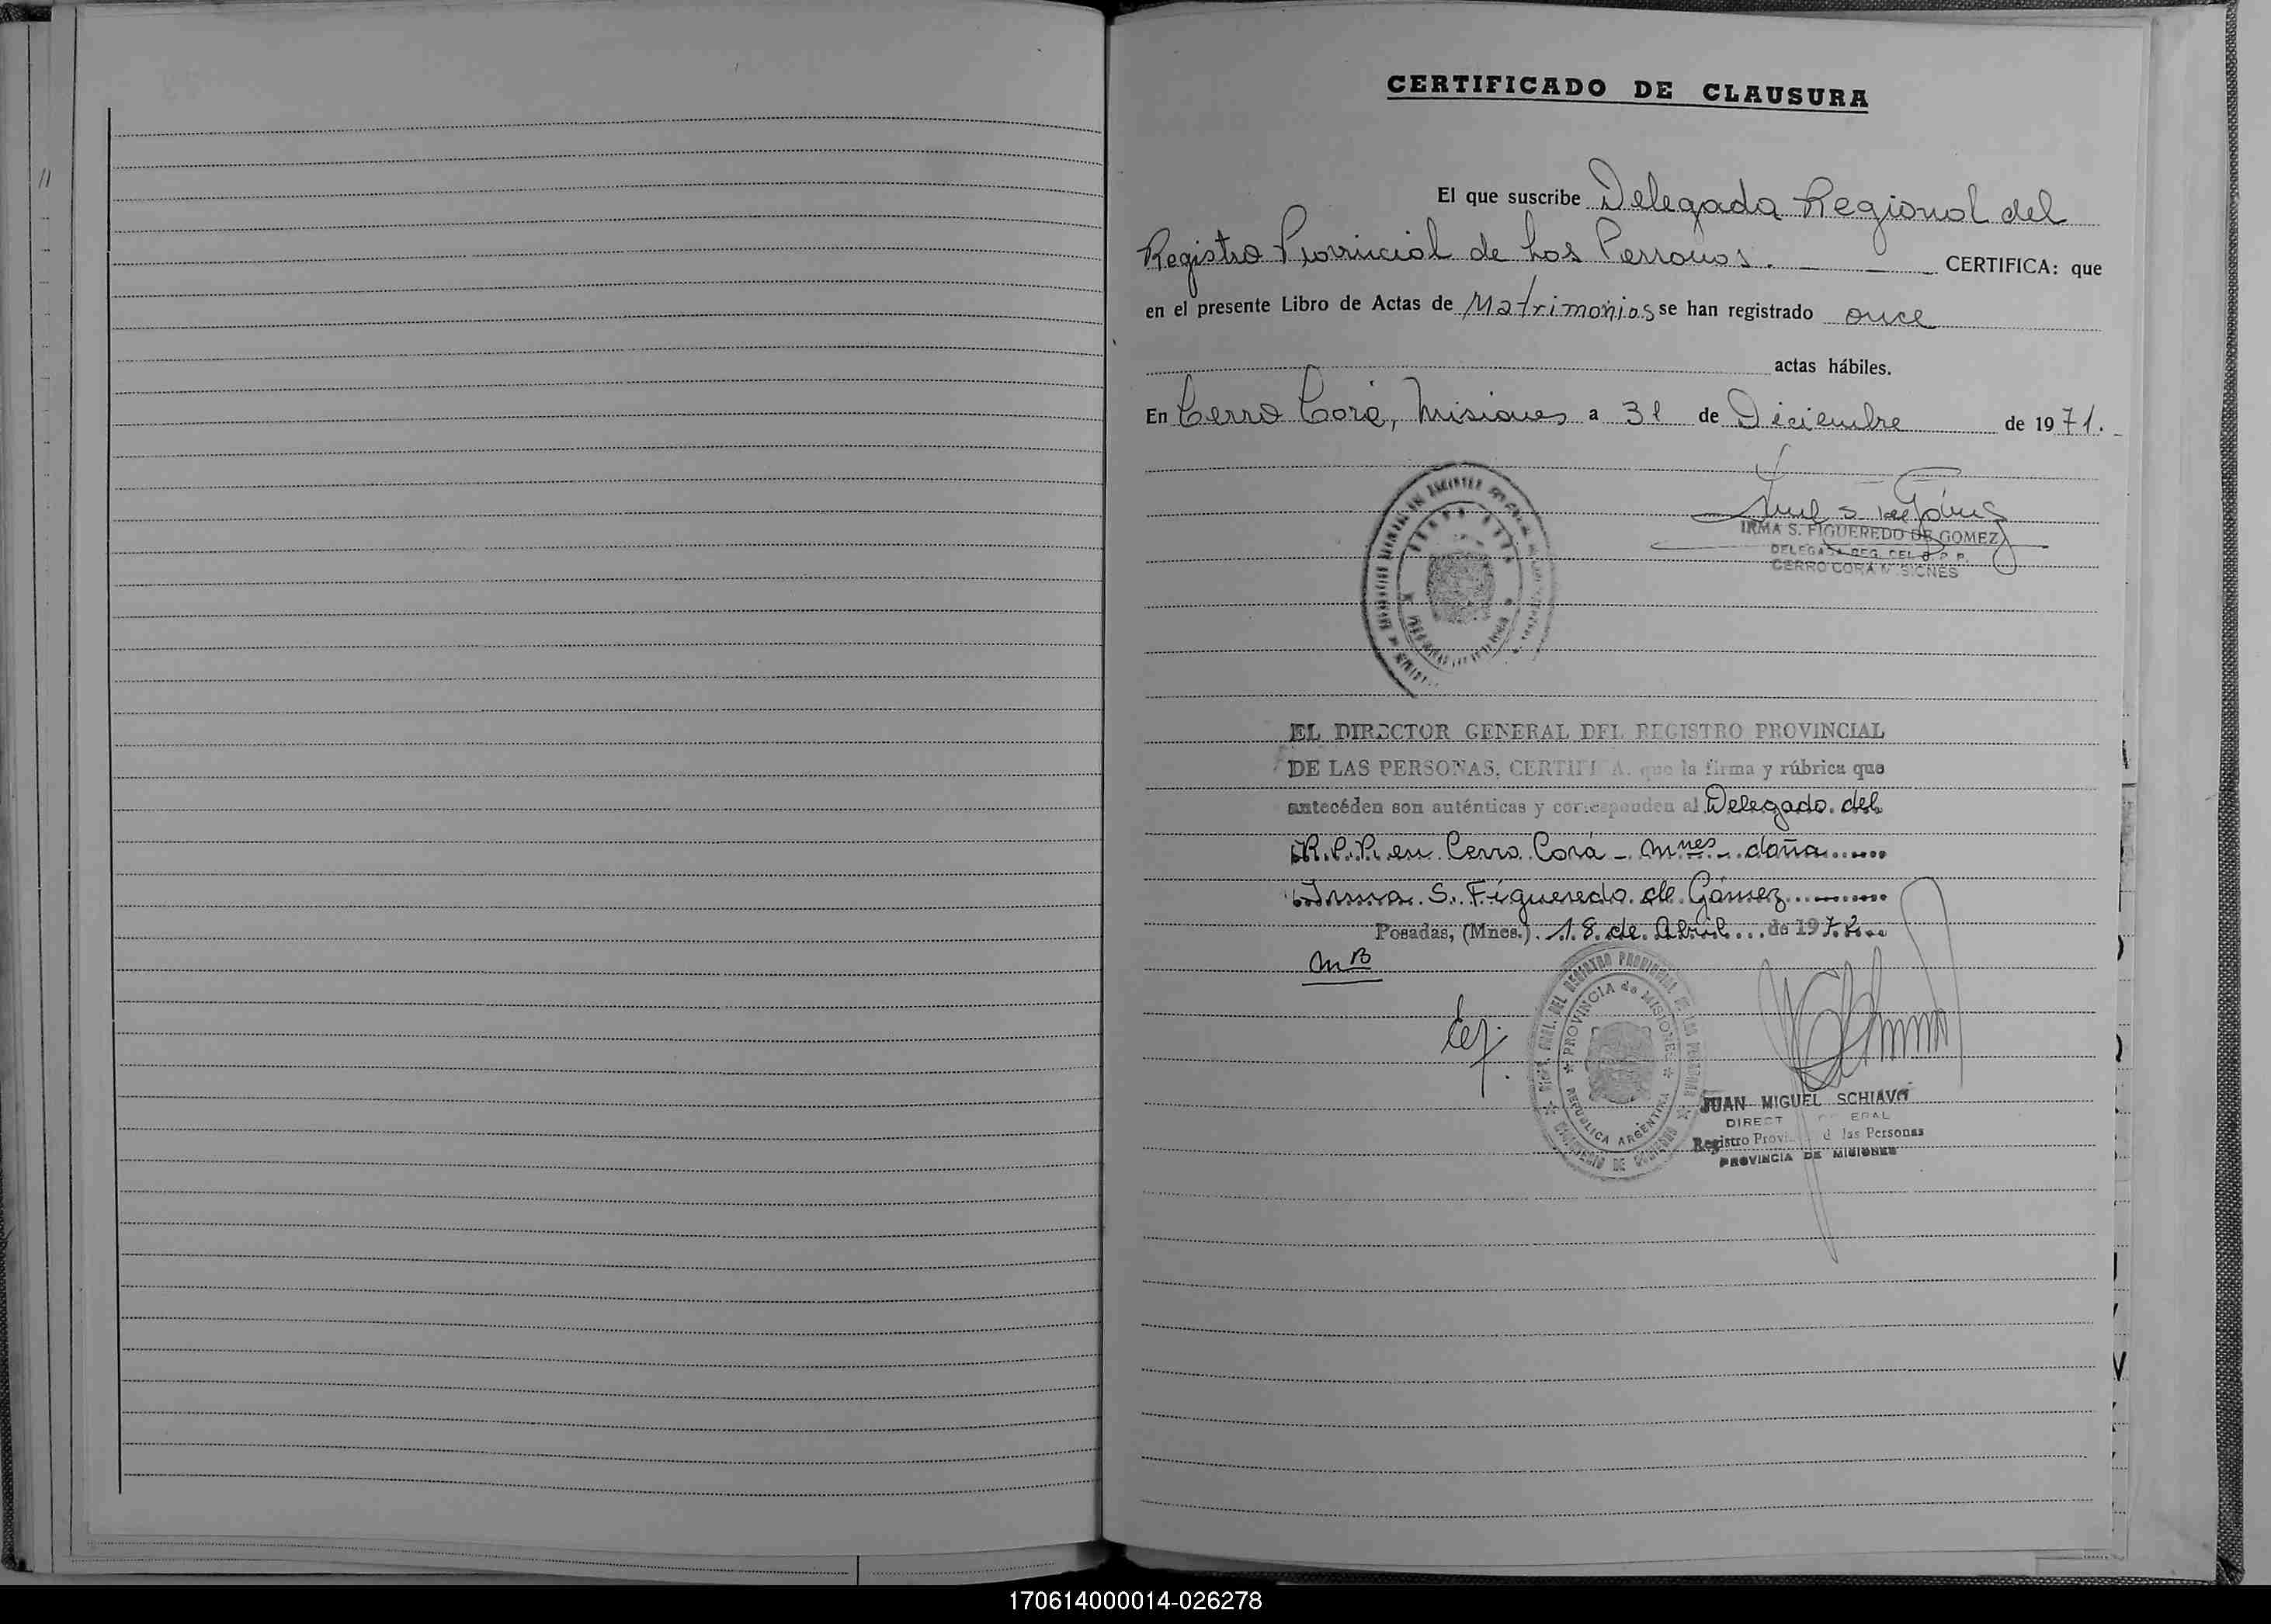 11
CERTIFICADO DE CLAUSURA
El que suscribe Delegada Regional del
Registro Provincial de Las Personas. CERTIFICA: que
en el presente Libro de Actas de Matrimonios se han registrado once
actas hábiles.
En Cerro Corá, Misiones a 31 de Diciembre de 1971.
IRMA S. FIGUEREDO DE GOMEZ
DELEGADA REG. DEL R. P. P.
CERRO CORA MISIONES
EL DIRECTOR GENERAL DEL REGISTRO PROVINCIAL
DE LAS PERSONAS, CERTIFICA, que la firma y rúbrica que
antecéden son auténticas y corresponden al Delegado del
R.P.P. en Cerro Corá - Mnes - doña
Irma S. Figueredo de Gómez
Posadas, (Mnes.) 18 de Abril de 1972
MB
PROVINCIA de MISIONES
REPUBLICA ARGENTINA
JUAN MIGUEL SCHIAVO
DIRECTOR GENERAL
Registro Provi d las Personas
PROVINCIA DE MISIONES
170614000014-026278